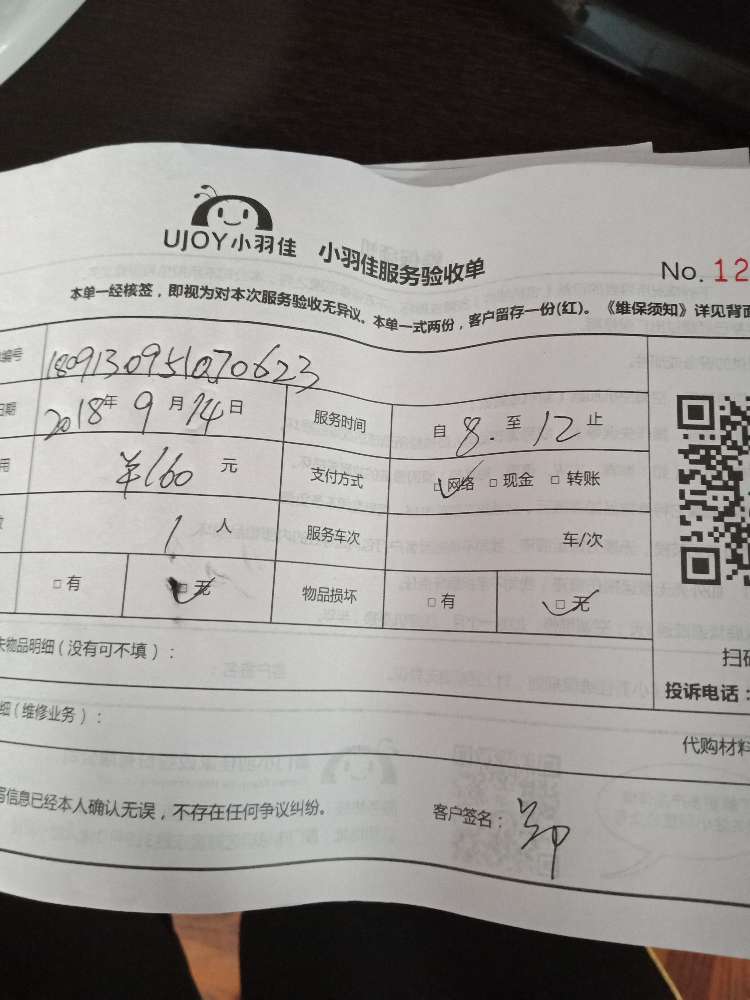 UJOY小羽佳 小羽佳服务验收单
No. 12
本单一经核签，即视为对本次服务验收无异议。本单一式两份，客户留存一份(红)。《维保须知》详见背面
编号 180913095107062 3
日期 2018年9月14日 服务时间 自 8 至 12 止
用 ¥160 元 支付方式 □网络 □现金 □转账
数 1 人 服务车次 车/次
□有 □无 物品损坏 □有 □无
失物品明细(没有可不填)：
扫码
投诉电话：
细(维修业务)：
代购材料
写信息已经本人确认无误，不存在任何争议纠纷。 客户签名：